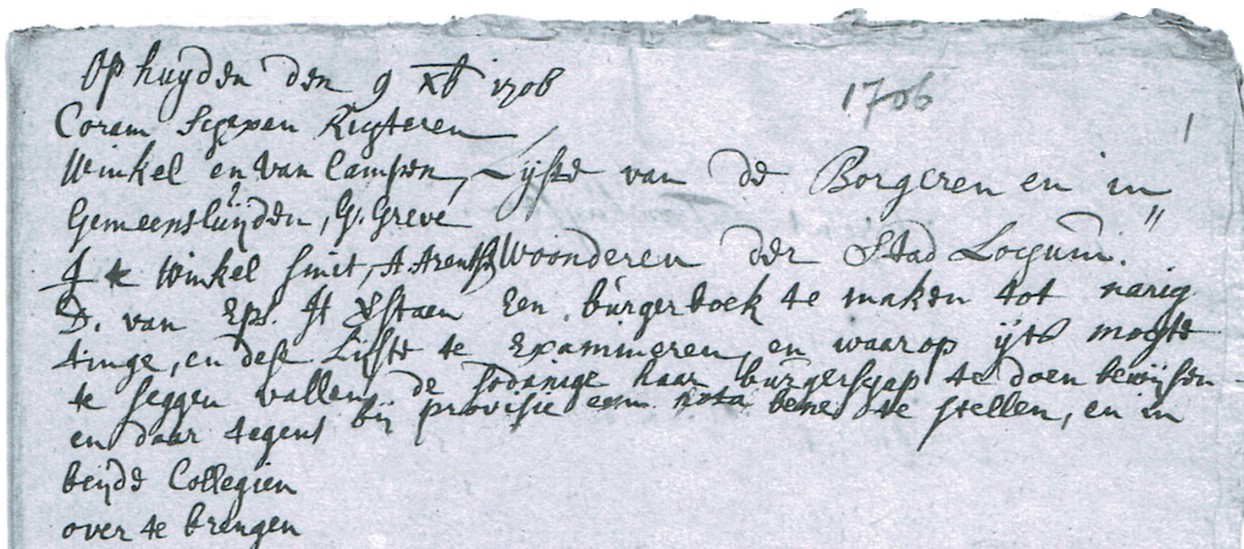 Op huyden den 9 xb 1706
1706
1
Coram Schepen Rigteren
Winkel en van Campen, Lijste van de Borgeren en in
Gemeensluijden, G. Greve
Winkel smit, A. Arents Woonderen der Stad Lochum.
D. van Eps. Is verstaen een burgerboek te maken tot narig
tinge, en dese Lijste te Examineren, en waarop ijts mogte
te seggen vallen, de sodanige haar burgerschap te doen bewijsen
en daar tegens bij provisie een nota bene te stellen, en in
beijde Collegien
over te brengen